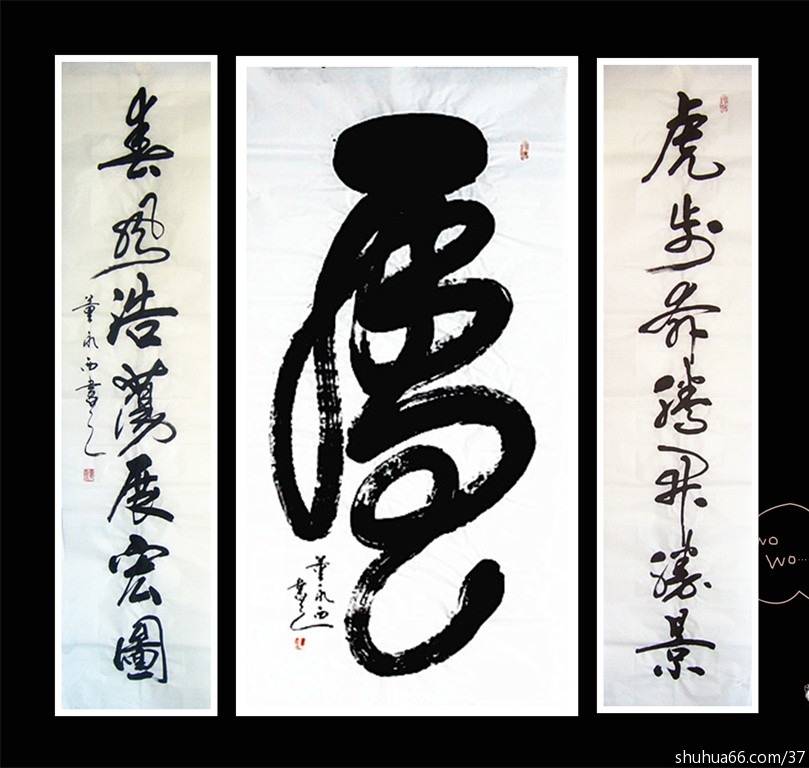 虎步奔騰開勝景
虎
董永西
書
春風浩蕩展宏圖
董永西書
wo
wo...
shuhua66.com/37